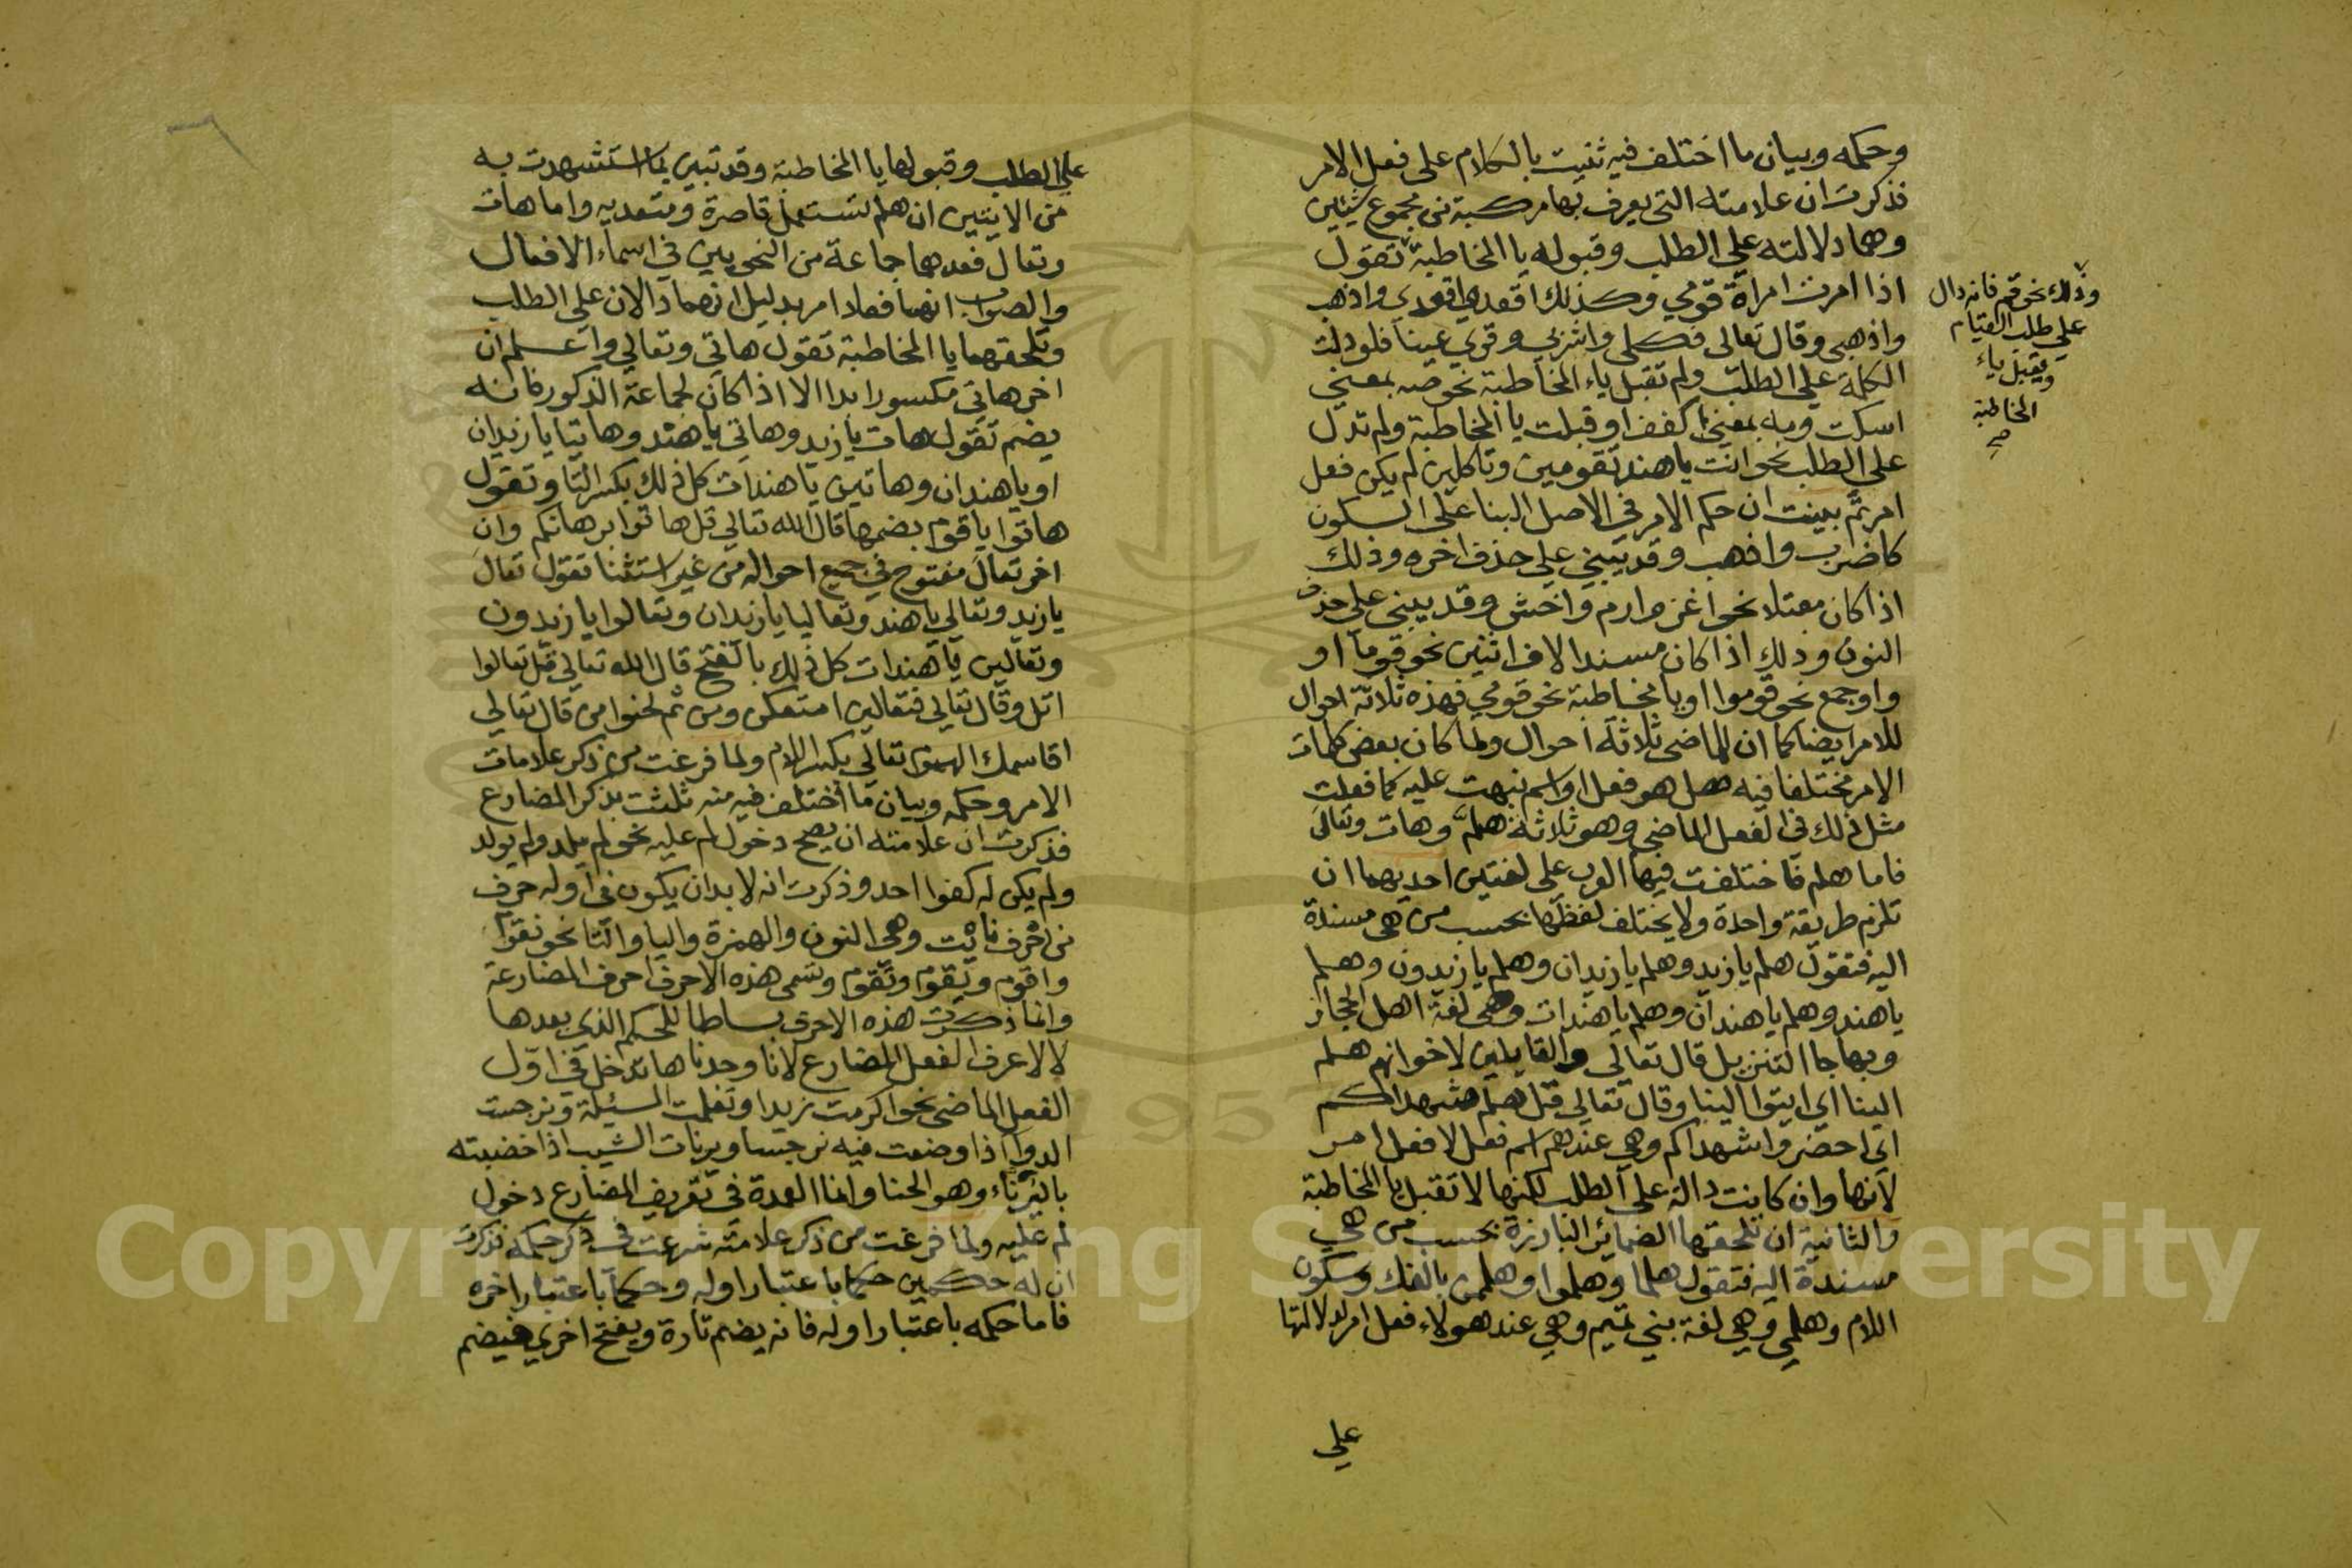 وحكمه وبيان ما اختلف فيه ثنيت بالكلام على فعل الامر
فذكرت ان علامته التى يعرف بها مركبة من مجموع شيئين
وهما دلالته على الطلب وقبوله يا المخاطبة تقول
اذا امرت امراة قومي وكذلك اقعد واقعدي واذهب
واذهبى وقال تعالى فكلي واشربي وقري عينا فلو دلت
الكلمة على الطلب ولم تقبل ياء المخاطبة نحو صه بمعنى
اسكت ومه بمعنى اكفف او قبلت يا المخاطبة ولم تدل
على الطلب نحو انت يا هند تقومين وتاكلين لم يكن فعل
امر ثم بينت ان حكم الامر في الاصل البنا على السكون
كاضرب واذهب وقد يبني علي حذف اخره وذلك
اذا كان معتلا نحو اغز وارم واخش وقد يبنى على حذف
النون وذلك اذا كان مسندا لالف اثنين نحو قوما او
واو جمع نحو قوموا او يا مخاطبة نحو قومي فهذه ثلاثة احوال
للامر ايضا كما ان للماضى ثلاثة احوال ولما كان بعض كلمات
الامر مختلفا فيه هل هو فعل او اسم نبهت عليه كما فعلت
مثل ذلك في الفعل الماضي وهو ثلاثة هلم وهات وتعال
فاما هلم فاختلفت فيها العرب على لغتين احديهما ان
تلزم طريقة واحدة ولا يختلف لفظها بحسب من هى مسندة
اليه فتقول هلم يا زيد وهلم يا زيدان وهلم يا زيدون وهلم
يا هند وهلم يا هندان وهلم يا هندات وهى لغة اهل الحجاز
وبها جا التنزيل قال تعالى والقايلين لاخوانهم هلم
الينا اي ايتوا الينا وقال تعالى قل هلم شهداكم
اى احضروا شهداكم وهي عندهم اسم فعل لا فعل امر
لانها وان كانت دالة على الطلب لكنها لا تقبل يا المخاطبة
والثانية ان تلحقها الضمائر البارزة بحسب من هي
مسندة اليه فتقول هلما وهلموا وهلممن بالفك وسكون
اللام وهلمي وهي لغة بني تميم وهي عند هولاء فعل امر لدلالتها
علي
وذلك نحو قم فانه دال
علي طلب القيام
ويقبل ياء
المخاطبة
صح
على الطلب وقبولها يا المخاطبة وقد تبين بما استشهدت به
من الايتين ان هلم تستعمل قاصرة ومتعديه واما هات
وتعال فعدهما جماعة من النحويين في اسماء الافعال
والصواب انهما فعلا امر بدليل انهما دالان على الطلب
وتلحقهما يا المخاطبة تقول هاتي وتعالي واعلم ان
اخر هاتي مكسور ابدا الا اذا كان لجماعة الذكور فانه
يضم تقول هات يا زيد وهاتي يا هند وهاتيا يا زيدان
او يا هندان وهاتين يا هندات كل ذلك بكسر التا وتقول
هاتوا يا قوم بضمها قال الله تعالي قل هاتوا برهانكم وان
اخر تعال مفتوح في جميع احواله من غير استثنا تقول تعال
يا زيد وتعالي يا هند وتعاليا يا زيدان وتعالوا يا زيدون
وتعالين يا هندات كل ذلك بالفتح قال الله تعالي قل تعالوا
اتل وقال تعالي فتعالين امتعكن ومن ثم لحنوا من قال تعالي
اقاسمك الهموم تعالي بكسر اللام ولما فرغت من ذكر علامات
الامر وحكمه وبيان ما اختلف فيه منه ثلثت بذكر المضارع
فذكرت ان علامته ان يصح دخول لم عليه نحو لم يلد ولم يولد
ولم يكن له كفوا احد وذكرت انه لا بد ان يكون في اوله حرف
من احرف نايت وهى النون والهمزة واليا والتا نحو نقوم
واقوم ويقوم وتقوم وتسمى هذه الاحرف احرف المضارعة
وانما ذكرت هذه الاحرف بساطا للحكم الذي بعدها
لا لاعرف الفعل المضارع لانا وجدناها تدخل في اول
الفعل الماضى نحو اكرمت زيدا وتعلمت المسئلة ونرجست
الدوا اذا وضعت فيه نرجسا ويرنات الشيب اذا خضبته
باليرناء وهو الحنا وانما العمدة في تعريف المضارع دخول
لم عليه ولما فرغت من ذكر علامته شرعت في ذكر حكمه فذكرت
ان له حكمين حكما باعتبار اوله وحكما باعتبار اخره
فاما حكمه باعتبار اوله فانه يضم تارة ويفتح اخري فيضم
1957
Copyright © King Saud University